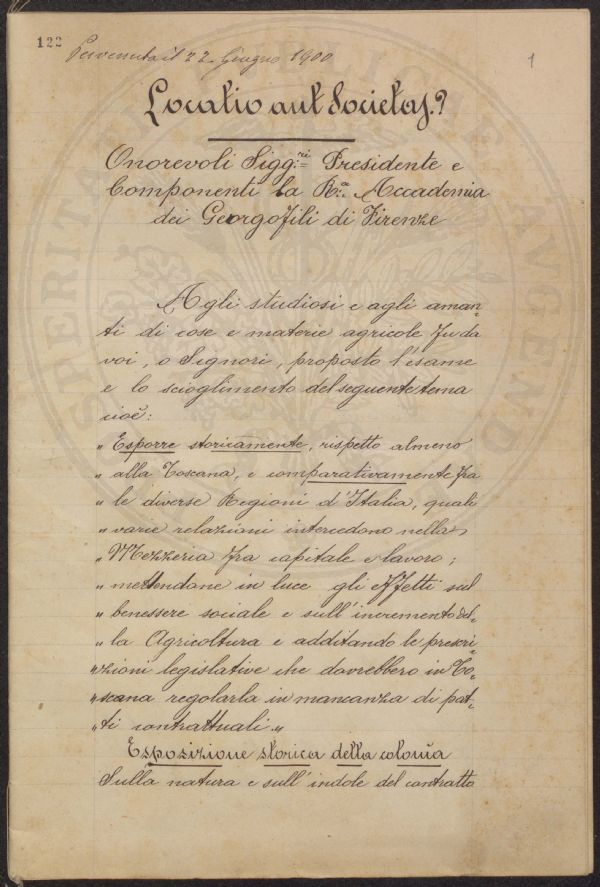 122
Pervenuta il 22 Giugno 1900
1
Locatio aut Societas?
Onorevoli Sigg:ri Presidente e
Componenti la R:a Accademia
dei Georgofili di Firenze
Agli studiosi e agli aman-
ti di cose e materie agricole fu da
voi, o Signori, proposto l'esame
e lo scioglimento del seguente tema
cioè:
" Esporre storicamente, rispetto almeno
" alla Toscana, e comparativamente fra
" le diverse Regioni d'Italia, quali
" varie relazioni intercedono nella
" Mezzeria fra capitale e lavoro;
" mettendone in luce gli effetti sul
" benessere sociale e sull'incremento del-
" la Agricoltura e additando le prescri-
" zioni legislative che dovrebbero in To-
" scana regolarla in mancanza di pat-
" ti contrattuali "
Esposizione storica della colonia
Sulla natura e sull'indole del contratto